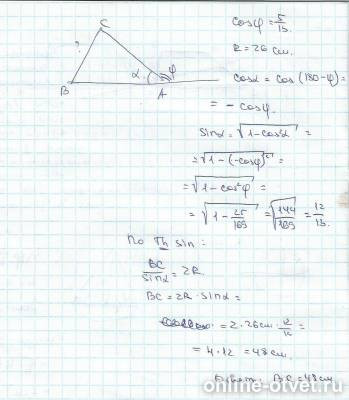 C
?
α
φ
B
A
cosφ = 5/13.
R = 26 см.
cosα = cos(180-φ) =
= - cosφ.
sinα = √(1-cos²α) =
= √(1-(-cosφ)²) =
= √(1-cos²φ) =
= √(1-25/169) = √(144/169) = 12/13.
По Th sin:
BC/sinα = 2R.
BC = 2R · sinα =
= 2·26см·
= 4·12 = 48 см.
Ответ: BC = 48 см
online-otvet.ru